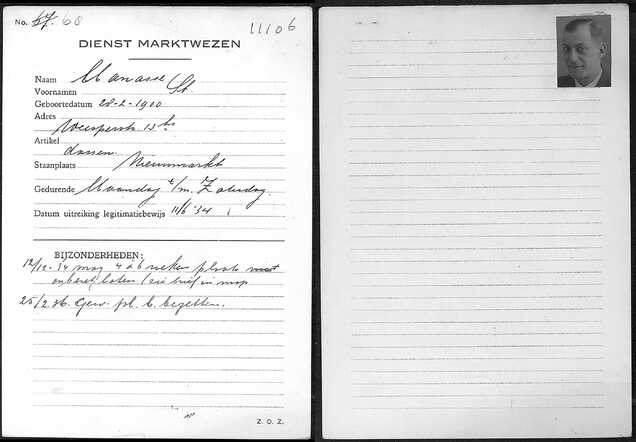 No. 57. 68
11106
DIENST MARKTWEZEN
Naam Manasse
Voornamen St
Geboortedatum 28-2-1910
Adres
Weesperstr. 15 hs
Artikel
dassen.
Staanplaats Nieuwmarkt
Gedurende Maandag t/m. Zaterdag.
Datum uitreiking legitimatiebewijs 11/6 '34
BIJZONDERHEDEN:
12/12-34 mag 4 à 6 weken plaats
laten / zie brief in map
25/2.36. Gew. pl. b.
Z. O. Z.